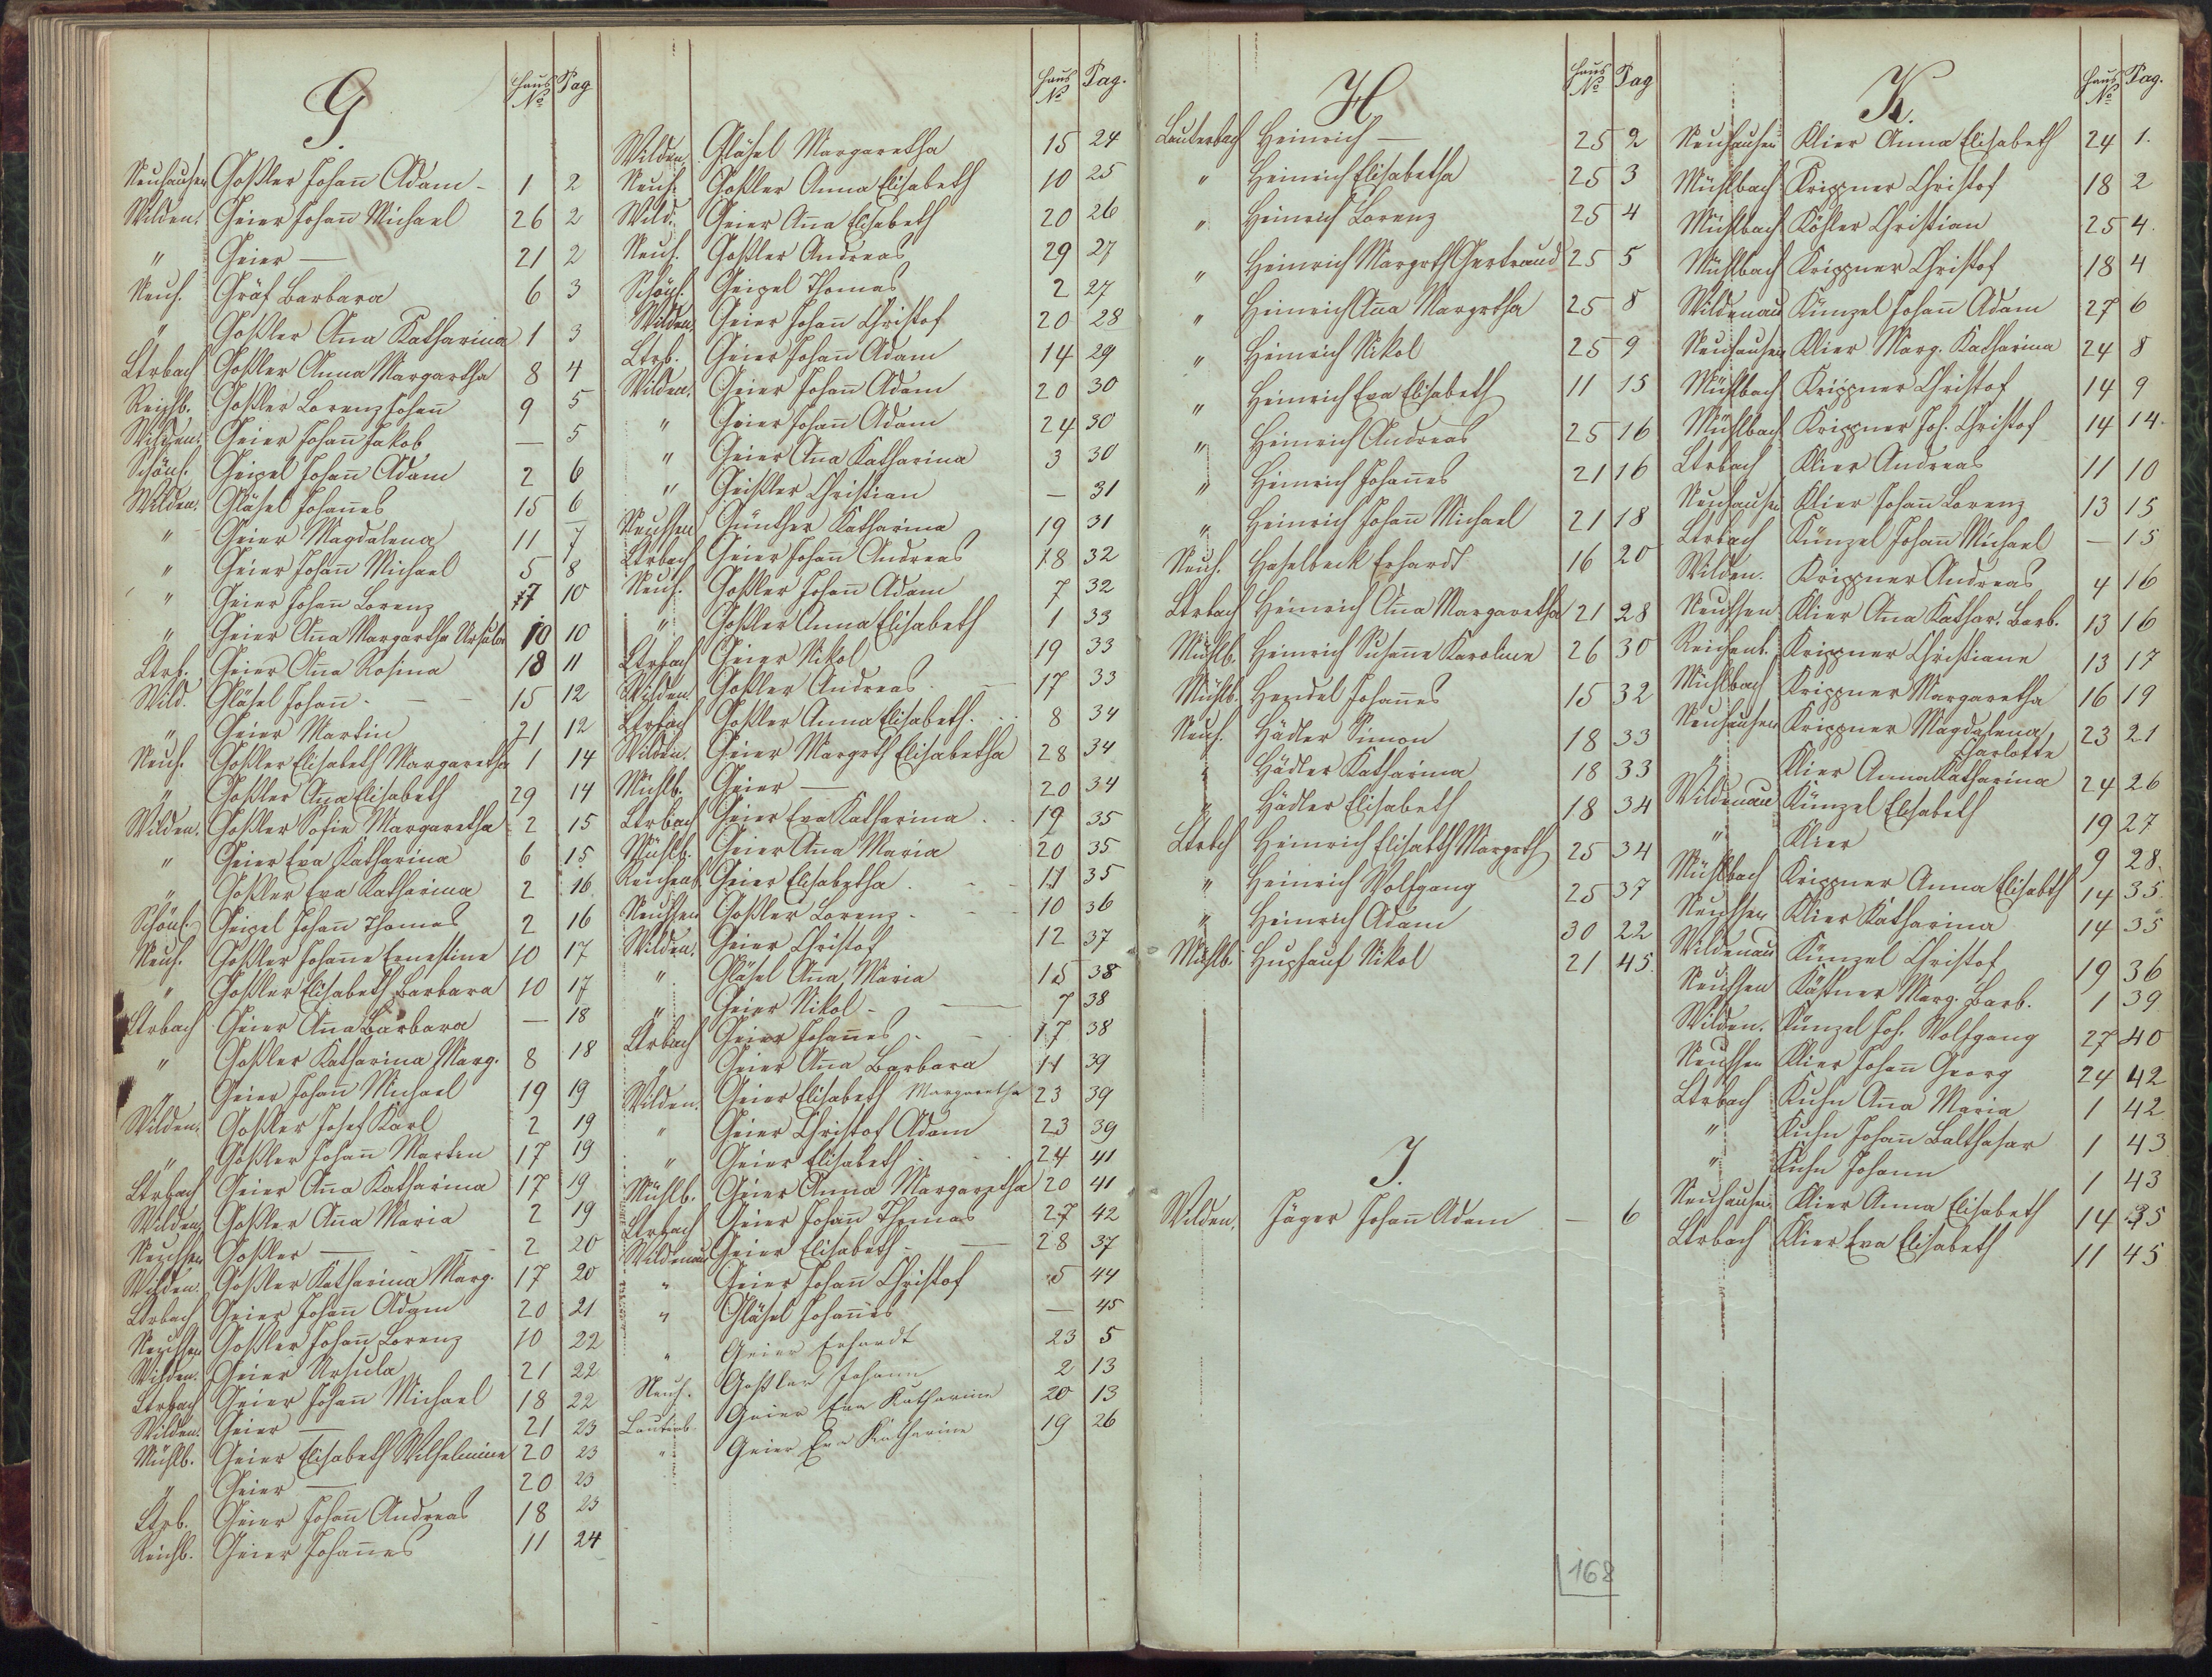 G.
Haus No Pag
Neuhausen Goßler Johañ Adam - 1 2
Wilden. Geier Johañ Michael 26 2
" Geier — 21 2
Neuh. Gräf Barbara 6 3
" Goßler Aña Katharina 1 3
Ltrbach Goßler Anna Margartha 8 4
Reichb. Goßler Lorenz Johañ 9 5
Wilden. Geier Johañ Jakob — 5
Schönl. Geipel Johañ Adam 2 6
Wilden. Gläsel Johañes 15 6
" Geier Magdalena 11 7
" Geier Johañ Michael 5 8
" Geier Johañ Lorenz 17 10
" Geier Aña Margartha Ursula 10 10
Ltrb. Geier Aña Rosina 18 11
Wild. Gläsel Johañ - — 15 12
" Geier Martin 21 12
Neuh. Goßler Elisabeth Margaretha 1 14
" Goßler Aña Elisabeth 29 14
Wilden. Goßler Sofie Margaretha 2 15
" Geier Eva Katharina 6 15
" Goßler Eva Katharina 2 16
Schönl. Geipel Johañ Thomas 2 16
Neuh. Goßler Johañe Ernestine 10 17
" Goßler Elisabeth Barbara 10 17
Ltrbach Geier Aña Barbara — 18
" Goßler Katharina Marg. 8 18
" Geier Johañ Michael 19 19
Wilden. Goßler Josef Karl 2 19
" Goßler Johañ Martin 17 19
Ltrbach Geier Aña Katharina 17 19
Wilden. Goßler Aña Maria 2 19
Neuhsen Goßler — 2 20
Wilden. Goßler Katharina Marg. 17 20
Ltrbach Geier Johañ Adam 20 21
Neuhsen Goßler Johañ Lorenz 10 22
Wilden. Geier Ursula 21 22
Ltrbach Geier Johañ Michael 18 22
Wilden. Geier — 21 23
Mühlb. Geier Elisabeth Wilhelmine 20 23
" Geier — 20 23
Ltrb. Geier Johañ Andreas 18 23
Reichb. Geier Johañes 11 24
Haus No Pag.
Wilden. Gläsel Margaretha 15 24
Neuh. Goßler Anna Elisabeth 10 25
Wild. Geier Aña Elisabeth 20 26
Neuh. Goßler Andreas 29 27
Schönl. Geipel Thomas 2 27
Wilden. Geier Johañ Christof 20 28
Ltrb. Geier Johañ Adam 14 29
Wilden. Geier Johañ Adam 20 30
" Geier Johañ Adam 24 30
" Geier Aña Katharina 3 30
" Geißler Christian — 31
Neuhsen Günther Katharina 19 31
Ltrbach Geier Johañ Andreas 18 32
Neuh. Goßler Johañ Adam 7 32
" Goßler Anna Elisabeth 1 33
Ltrbach Geier Nikol 19 33
Wilden Goßler Andreas 17 33
Ltrbach Goßler Anna Elisabeth. 8 34
Wilden. Geier Margrth Elisabetha 28 34
Mühlb. Geier — 20 34
Ltrbach Geier Eva Katharina 19 35
Mühlb. Geier Aña Maria 20 35
Reichenb. Geier Elisabetha 11 35
Neuhsen Goßler Lorenz 10 36
Wilden. Geier Christof 12 37
" Gläsel Aña Maria 15 38
" Geier Nikol - — 7 38
Ltrbach Geier Johañes 17 38
" Geier Aña Barbara 11 39
Wilden. Geier Elisabeth Margaretha 23 39
" Geier Christof Adam 23 39
" Geier Elisabeth 24 41
Mühlb. Geier Anna Margaretha 20 41
Ltrbach Geier Johañ Thomas 27 42
Wildenau Geier Elisabeth - — 28 37
" Geier Johañ Christof 5 44
" Gläsel Johañes — 45
" Geier Erhardt 23 5
Neuh. Goßler Johann 2 13
Lauterb. Geier Eva Katharine 20 13
" Geier Eva Katharine 19 26
H
Haus No Pag
Lauterbach Heinrich — 25 2
" Heinrich Elisabetha 25 3
" Heinrich Lorenz 25 4
" Heinrich Margrth Gertraud 25 5
" Heinrich Aña Margrtha 25 8
" Heinrich Nikol 25 9
" Heinrich Eva Elisabeth 11 15
" Heinrich Andreas 25 16
" Heinrich Johañes 21 16
" Heinrich Johañ Michael 21 18
Neuh. Haselbeck Erhardt 16 20
Ltrbach Heinrich Aña Margaretha 21 28
Mühlb. Heinrich Susañe Karoline 26 30
Mühlb. Hendel Johañes 15 32
Neuh. Hädler Simon 18 33
" Hädler Katharina 18 33
" Hädler Elisabeth 18 34
Ltrbch Heinrich Elisabth Margrth 25 34
" Heinrich Wolfgang 25 37
" Heinrich Adam 30 22
Mühlb. Hupfauf Nikol 21 45.
J.
Wilden. Jäger Johañ Adam — 6
168
K.
Haus No Pag.
Neuhausen Klier Anna Elisabeth 24 1.
Mühlbach Krippner Christof 18 2
Mühlbach Köhler Christian 25 4.
Mühlbach Krippner Christof 18 4
Wildenau Künzel Johañ Adam 27 6
Neuhausen Klier Marg. Katharina 24 8
Mühlbach Krippner Christof 14 9
Mühlbach Krippner Joh. Christof 14 14.
Ltrbach Klier Andreas 11 10
Neuhausen Klier Johañ Lorenz 13 15
Ltrbach Künzel Johañ Michael — 15
Wilden. Krippner Andreas 4 16
Neuhsen Klier Aña Kathar. Barb. 13 16
Reichenb. Krippner Christiane 13 17
Mühlbach Krippner Margaretha 16 19
Neuhausen Krippner Magdalena Charlotte 23 21
" Klier Anna Katharina 24 26
Wildenau Künzel Elisabeth 19 27
" Klier 9 28.
Mühlbach Krippner Anna Elisabth 14 35.
Neuhsen Klier Katharina 14 35
Wildenau Künzel Christof 19 36
Neuhsen Kästner Marg. Barb. 1 39
Wilden. Künzel Joh. Wolfgang 27 40
Neuhsen Klier Johañ Georg 24 42
Ltrbach Kuhn Aña Maria 1 42
" Kuhn Johañ Balthasar 1 43
" Kuhn Johann 1 43
Neuhausen Klier Anna Elisabeth 14 35
Ltrbach Klier Eva Elisabeth 11 45